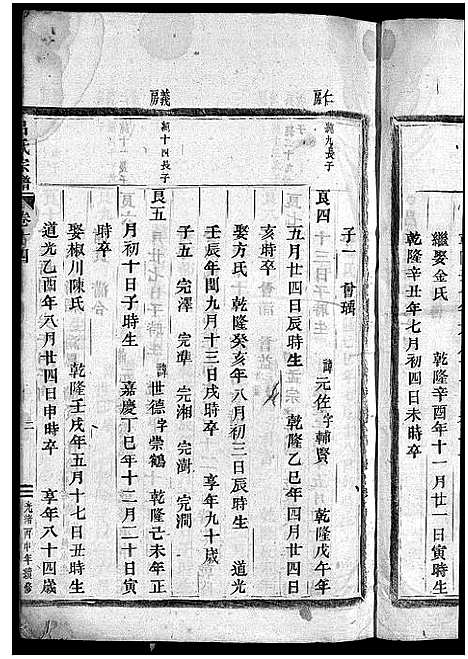 繼娶金氏　乾隆辛酉年十一月廿一日寅時生
乾隆辛丑年七月初四日未時卒
子一
仁房
純九長子
良四　諱元佐字輔賢　乾隆戊午年
五月廿四日辰時生　乾隆乙巳年四月廿四日
亥時卒
娶方氏　乾隆癸亥年八月初三日辰時生　道光
壬辰年閏九月十三日戌時卒　享年九十歲
子五　完澤　完準　完湘　完澍　完澗
義房
純十四長子
良五　諱世德字崇鶴　乾隆己未年正
月初十日子時生　嘉慶丁巳年十二月二十日寅
時卒
娶椒川陳氏　乾隆壬戌年五月十七日丑時生
道光乙酉年八月廿四日申時卒　享年八十四歲
氏宗譜
卷
四
三
光緒丙申年續修